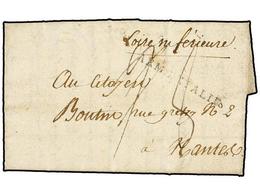 Loire inferieure.
ARM. D'ITALIE
Au Citoyen
Boutin, rue gretry N 2
à Nantes